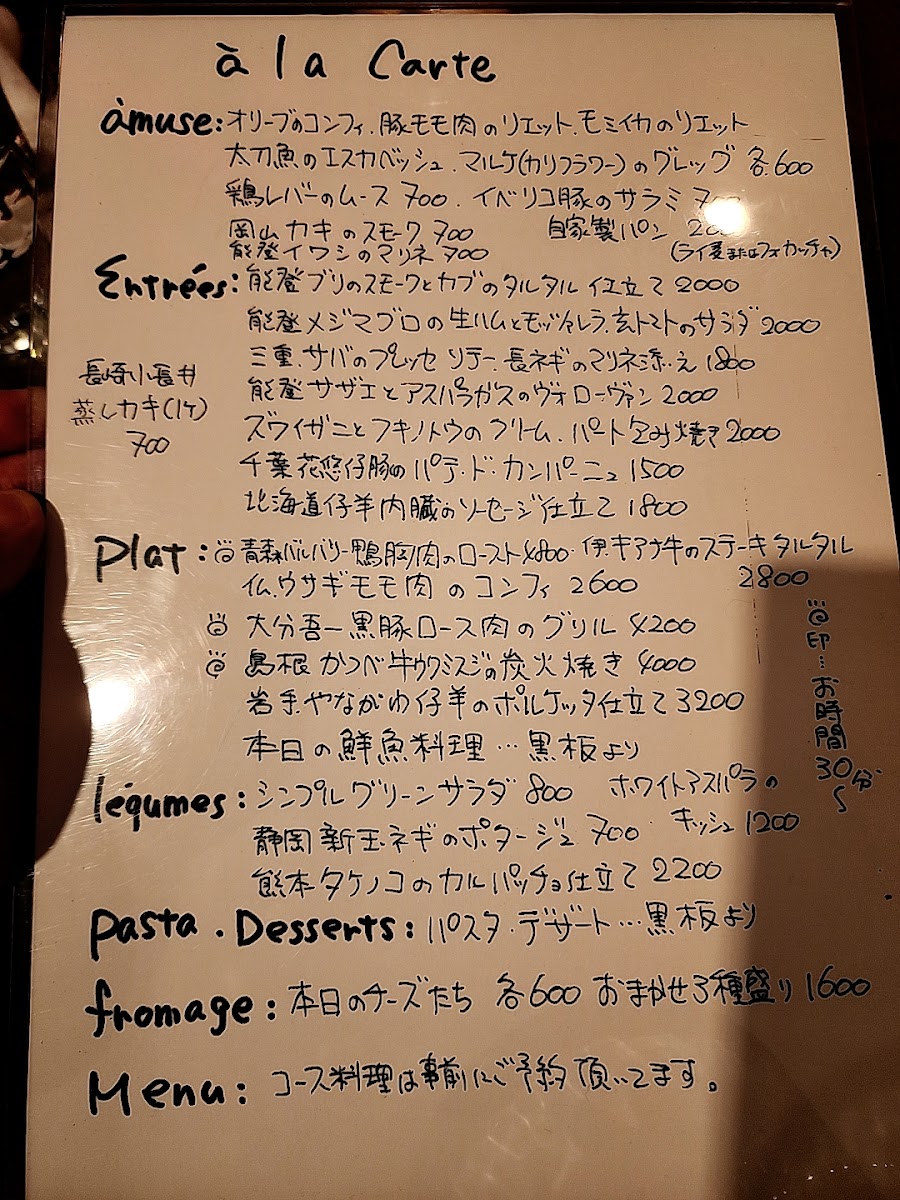 à la Carte
àmuse: オリーブのコンフィ. 豚モモ肉のリエット. モミイカのリエット
太刀魚のエスカベッシュ. マルケ(カリフラワー)のグレッグ 各600
鶏レバーのムース 700. イベリコ豚のサラミ
岡山カキのスモーク 700 自家製パン
能登イワシのマリネ 700 (ライ麦またはフォカッチャ)
Entrées: 能登ブリのスモークとカブのタルタル仕立て 2000
能登メジマグロの生ハムとモッツァレラ. 玄トマトのサラダ 2000
三重. サバのプレッセ ソテー. 長ネギのマリネ添え 1800
能登サザエとアスパラガスのヴォローヴァン 2000
長崎小長井
蒸しカキ(1ケ)
700
ズワイガニとフキノトウのクリーム. パート包み焼き 2000
千葉花悠仔豚のパテ・ド・カンパーニュ 1500
北海道仔羊内臓のソーセージ仕立て 1800
Plat: 青森バルバリー鴨胸肉のロースト 4800. 伊. キアナ牛のステーキタルタル
2800
仏. ウサギモモ肉のコンフィ 2600
大分吾一黒豚ロース肉のグリル 4200
島根かつべ牛ウワミスジの炭火焼き 4000
岩手. やながわ仔羊のポルケッタ仕立て 3200
本日の鮮魚料理…黒板より
印…お時間30分〜
légumes: シンプルグリーンサラダ 800 ホワイトアスパラの
キッシュ 1200
静岡新玉ネギのポタージュ 700
熊本タケノコのカルパッチョ仕立て 2200
Pasta . Desserts: パスタ. デザート…黒板より
fromage: 本日のチーズたち 各600 おまかせ3種盛り 1600
Menu: コース料理は事前にご予約頂いてます。